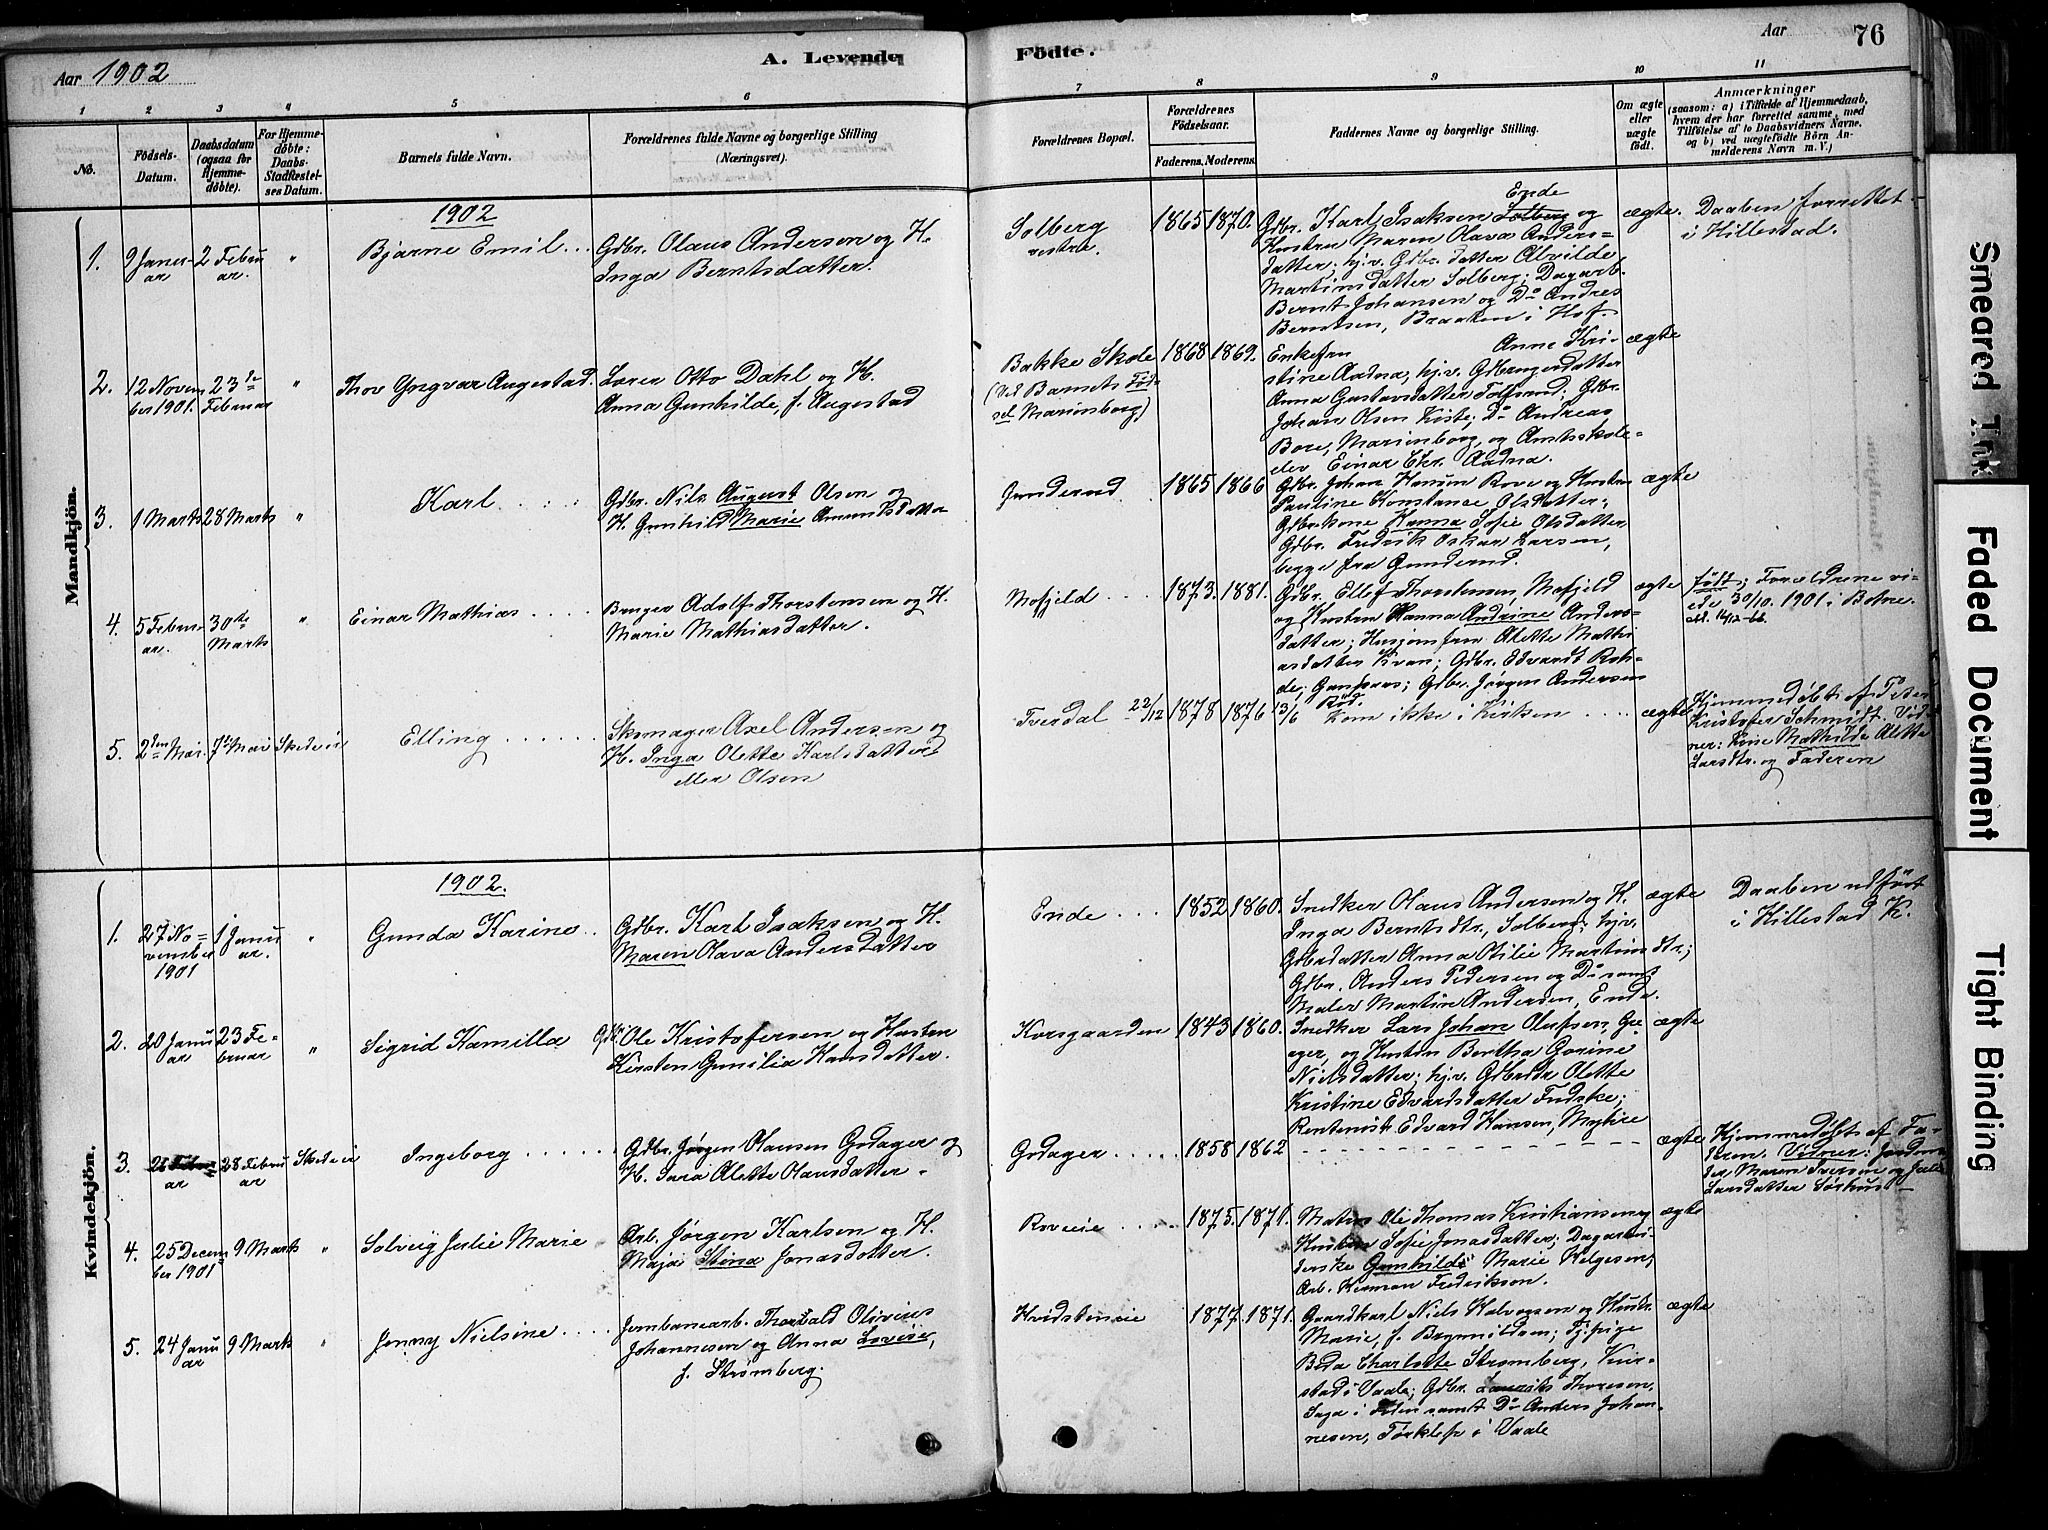 Aar 1902
A. Levende
Födte.
Aar
76
1 2 3 4 5 6 7 8 9 10 11
No.
Födsels-Datum.
Daabsdatum (ogsaa for Hjemmedöbte).
For Hjemmedöbte: Daabs-Stadfæstelses Datum.
Barnets fulde Navn.
Forældrenes fulde Navne og borgerlige Stilling (Næringsvei).
Forældrenes Bopæl.
Forældrenes Födselsaar.
Faderens. Moderens.
Faddernes Navne og borgerlige Stilling.
Om ægte eller uægte födt.
Anmærkninger
(saasom: a) i Tilfælde af Hjemmedaab,
hvem der har forrettet samme, med
Tilföielse af to Daabsvidners Navne.
og b) ved uægtefödte Börn Anmelderens Navn m. V.)
Mandkjön.
1902
1. 9 Januar
2 Februar.
"
Bjarne Emil
Gdbr. Olaus Andersen og H.
Inga Berntsdatter.
Solberg
vestre.
1865 1870.
Gdbr. Karl Isaksen Solberg Ende og
Hustru Maren Olava Anders=
datter; hj.v. Gdbr.datter Alvilde
Martinsdatter Solberg; Dagarb.
Bernt Johansen og Do Andres
Berntsen, Braaten i Hof.
ægte.
Daaben forrettet
i Hillestad.
2. 12 November 1901.
23de Februar
"
Thov Yngvar Augestad.
Lærer Otto Dahl og H.
Anna Gunhilde, f. Augestad
Bakke Skole
(Ved Barnets Fødsel Marienborg)
1868 1869.
Enkefru Anne Kri-
stine Aadna, hj.v. Gdbrugerdatter
Anna Gustavsdatter Tolfsrud; Gbr.
Johan Olsen Kiste; Do Andreas
Bore, Marienborg, og Amtsskole=
elev Einar Chr. Aadna.
ægte
3. 1 Marts
28 Marts
"
Karl
Gdbr. Nils August Olsen og
H. Gunhild Marie Amundsdatter
Gunderud
1865 1866
Gdbr. Johan Hansen Rove og Hustru
Pauline Konstanse Olsdatter;
Gdbrkone Hanna Sofie Olsdatter
Gdbr. Fredrik Oskar Larsen,
begge fra Gunderud.
ægte
4. 5 Februar.
30te Marts
"
Einar Mathias
Bruger Adolf Thorstensen og H.
Marie Mathiasdatter.
Mofjeld
1873. 1881.
Gdbr. Ellef Thorstensen, Mofjeld
og Hustru Hanna Andrine Anders=
datter; Husjomfru Alette Mathi
asdatter Kvan; Gdbr. Edvardt Roh-
de; Ganfaas; Gdbr. Jørgen Andersen
Röd.
ægte
født; Forældrene vi-
ede 30/10. 1901 i Botne.
5. 2den Mai.
7de Mai
Skede ei
Elling
Skomager Axel Andersen og
H. Inga Olette Karlsdatter
eller Olsen
Tverdal 22/12
1878 1876
13/6 Kom ikke i Kirken
ægte
Hjemmedøbt af Peter
Kristofer Schmidt. Vid
ner: Kone Mathilde Alette
Larsdtr. og Faderen
Kvindekjön.
1902.
1. 27 No=
vember
1901
1 Januar.
"
Gunda Karine
Gdbr. Karl Isaksen og H.
Maren Olava Andersdatter
Ende
1852 1860.
Snedker Olaus Andersen og H.
Inga Berntsdtr., Solberg; hjv.
Gdbrdatter Anna Otilie Martinsdtr;
Gdbr. Anders Pedersen og Do samt
Maler Martin Andersen, Ende.
ægte
Daaben udført
i Hillestad K.
2. 20 Januar
23 Februar
"
Sigrid Kamilla
Gdbr. Ole Kristofersen og Hustru
Kirsten Gunilia Hansdatter.
Korsgaarden
1843 1860.
Snedker Lars Johan Olufsen, Gre
ager, og Hustru Bertha Gorine
Nielsdatter; hj.v. Gdbrdtr Olette
Kristine Edvardsdatter Fudske;
Rentenist Edvard Hansen, Myhre
ægte
3. 28 Februar
28 Februar
Skede ei
Ingeborg
Gdbr. Jørgen Olausen Godager og
H. Sara Alette Olausdatter.
Godager
1858 1862
ægte
Hjemmedøbt af Fa-
deren. Vidner: Jordmo
der Maren Iversen og Julie
Larsdatter Sørhus
4. 25 December 1901
9 Marts
"
Solveig Julie Marie
Arb. Jørgen Karlsen og H.
Maja Stina Jonasdotter.
Roveeie
1875. 1871.
Matros Ole Thomas Kristiansen og
Hustru Sofie Jonasdatter; Dagarbei-
derske Gunhilde Marie Helgesen;
Arb. Herman Fredrikson.
ægte
5. 24 Januar
9 Marts
"
Jenny Nielsine
Jernbanearb. Thorvald Olivius
Johannesen og Anna Lovise,
f. Strømberg.
Hvidsteneie
1877. 1871.
Gaardkarl Niels Halvorsen og Hustr.
Marie, f. Brynnildsen; Tjpige
Beda Charlotte Strømberg,
stad i Vaale; Gdbr. Laurits Thoresen,
samt Do Anders Johan-
nesen, Tørklep i Vaale
ægte
Smeared Ink
Faded Document
Tight Binding